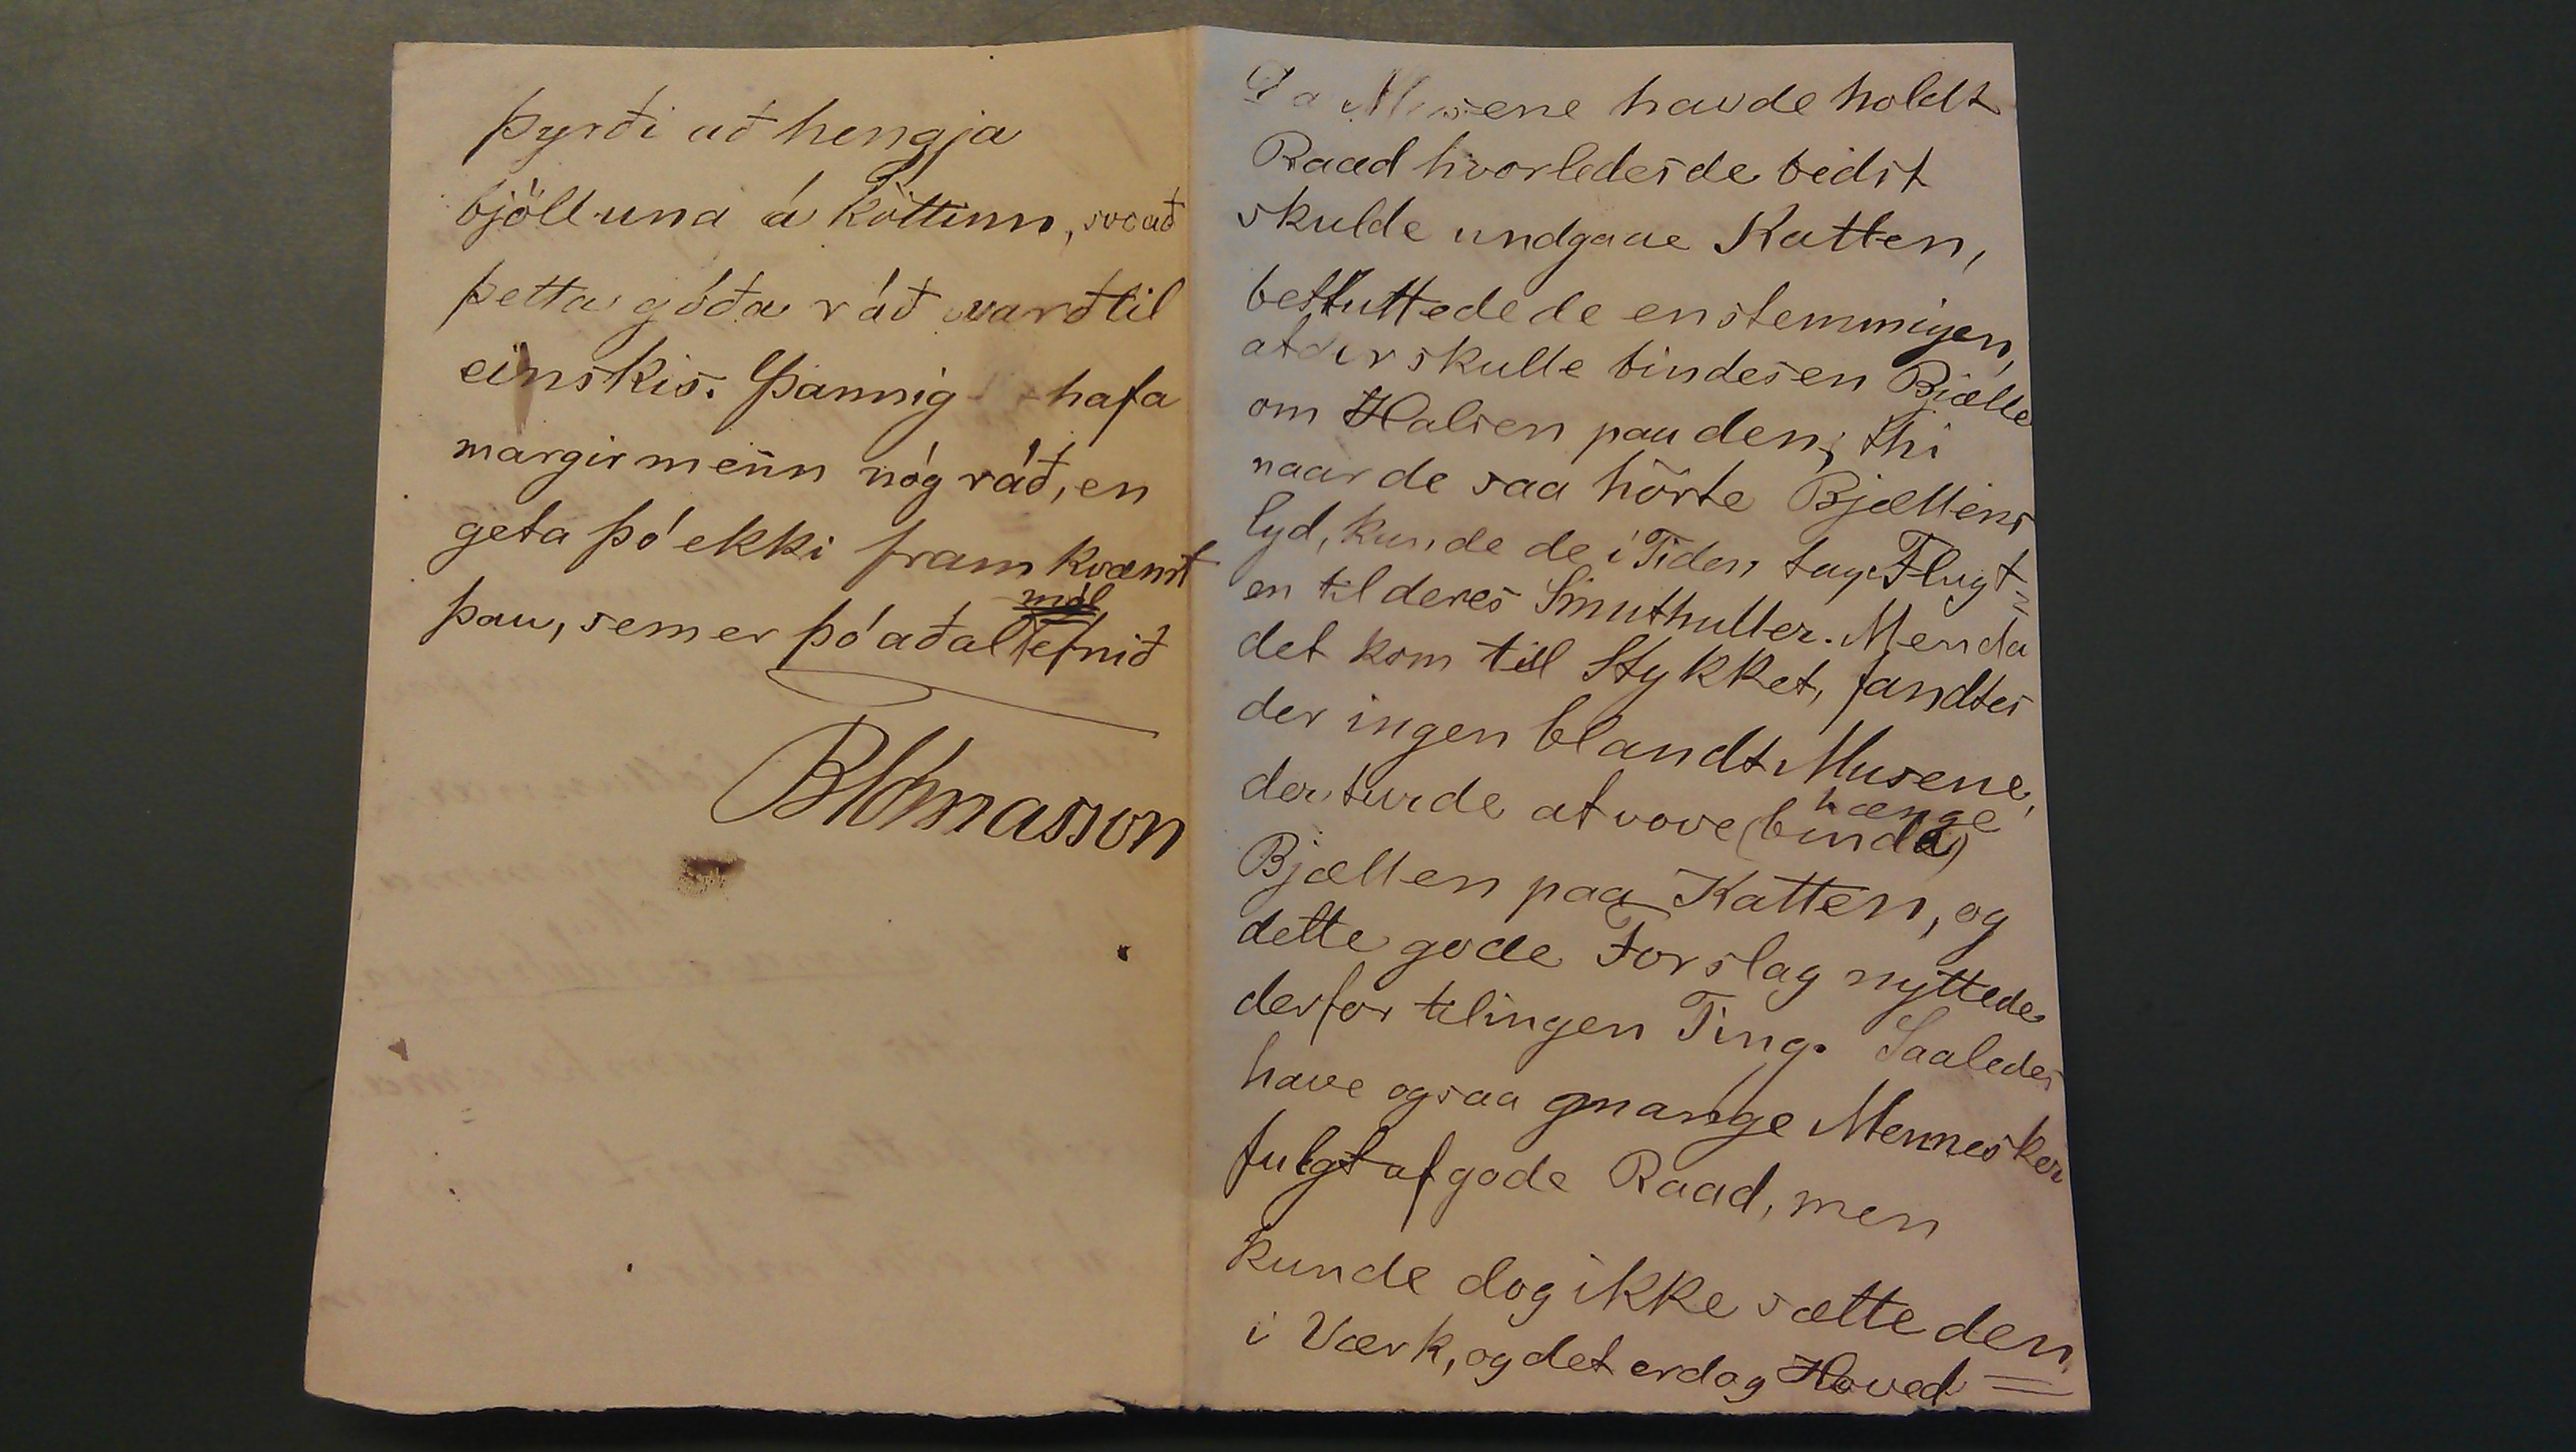 þyrði að hengja
bjölluna á köttinn, svo að
þetta góða ráð varð til
einskis. Þannig hafa
margir menn nóg ráð, en
geta þó ekki framkvæmt
mál
þau, sem er þó aðalefnið
BTómasson
Da Musene havde holdt
Raad hvorledes de bedst
skulde undgaae Katten,
besluttede de enstemmigen,
at der skulle bindes en Bjælle
om Halsen paa den; thi
naar de saa hörte Bjællens
lyd, kunde de i Tiden tage Flugt=
en til deres Smuthuller. Men da
det kom till Stykket, fandtes
der ingen blandt Musene,
der turde at vove (binde) hænge
Bjællen paa Katten, og
dette gode Forslag nyttede
derfor til ingen Ting. Saaledes
have ogsaa mange Mennesker
fulgt af gode Raad, men
kunde dog ikke sætte den
i Værk, og det er dog Hoved=